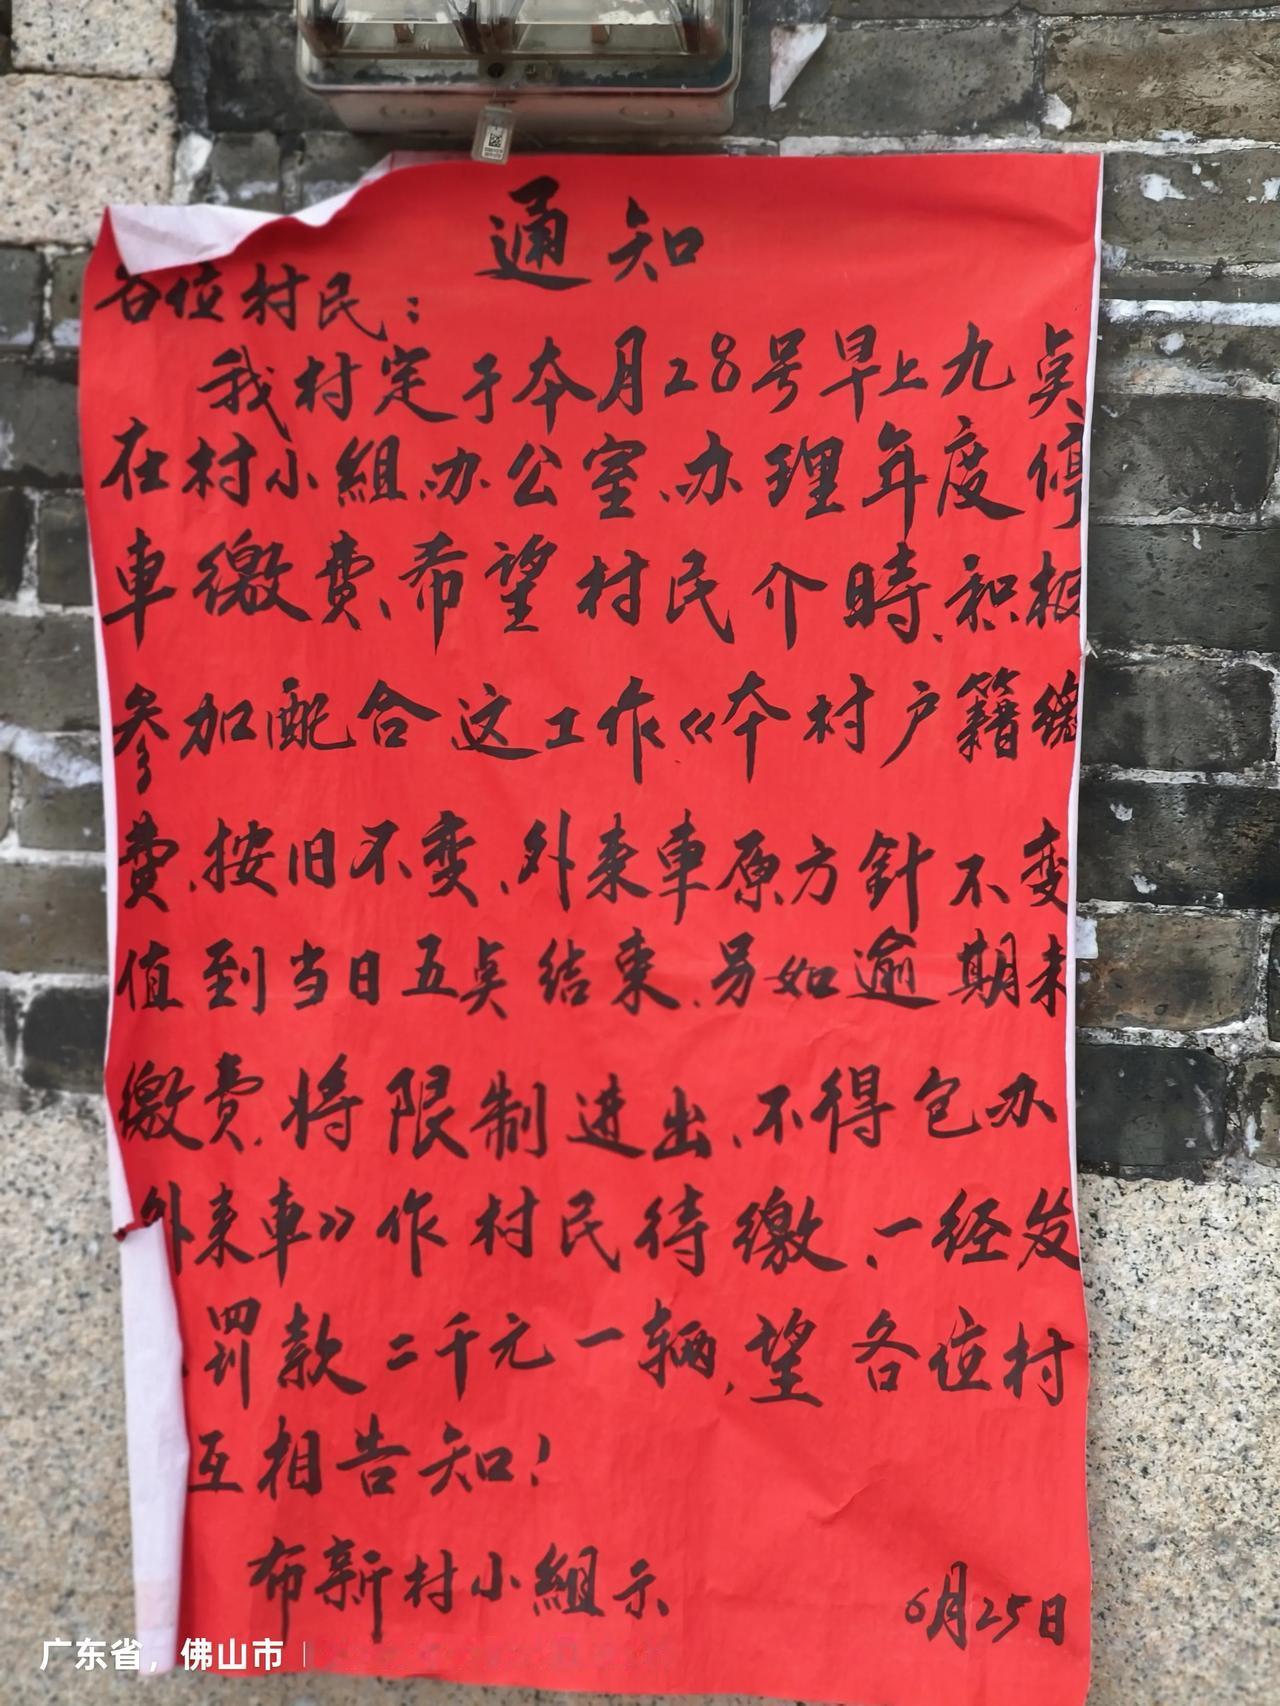 通知
各位村民：
我村定于本月28号早上九点
在村小組办公室、办理年度停
車缴費、希望村民介時、积极
参加配合这工作《本村户籍缴
費、按旧不变、外来車原方針不变
值到当日五点结束、另如逾期未
缴费、将限制进出、不得包办
外来車》作村民待缴、一经发
罚款二千元一辆、望各位村
互相告知！
布新村小組示
6月25日
广东省，佛山市